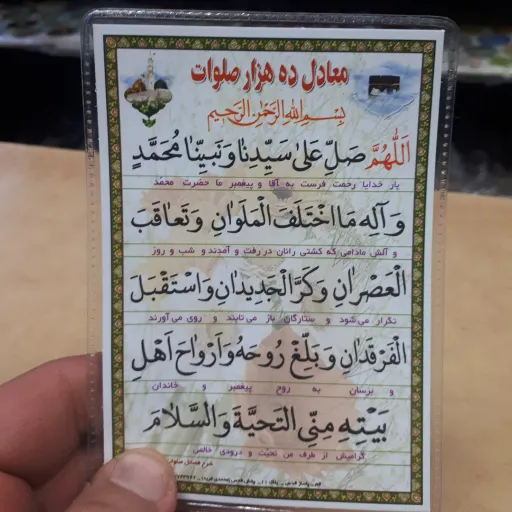 معادل ده هزار صلوات
بِسْمِ اللهِ الرَّحْمٰنِ الرَّحِيمِ
اَللّٰهُمَّ صَلِّ عَلىٰ سَيِّدِنٰا وَ نَبِيِّنٰا مُحَمَّدٍ
بار خدایا رحمت فرست به آقا و پیغمبر ما حضرت محمد
وَ آلِهِ مَا اخْتَلَفَ الْمَلَوٰانِ وَ تَعٰاقَبَ
و آلش مادامی که کشتی رانان در رفت و آمدند و شب و روز
الْعَصْرٰانِ وَ كَرَّ الْجَدِيدٰانِ وَ اسْتَقْبَلَ
تکرار می شود و ستارگان باز می تابند و روی می آورند
الْفَرْقَدٰانِ وَ بَلِّغْ رُوحَهُ وَ اَرْوٰاحَ اَهْلِ
و برسان به روح پیغمبر و خاندان
بَيْتِهِ مِنِّي التَّحِيَّةَ وَ السَّلٰامَ
گرامیش از طرف من تحیت و درودی خالص
شرح فضائل صلوات